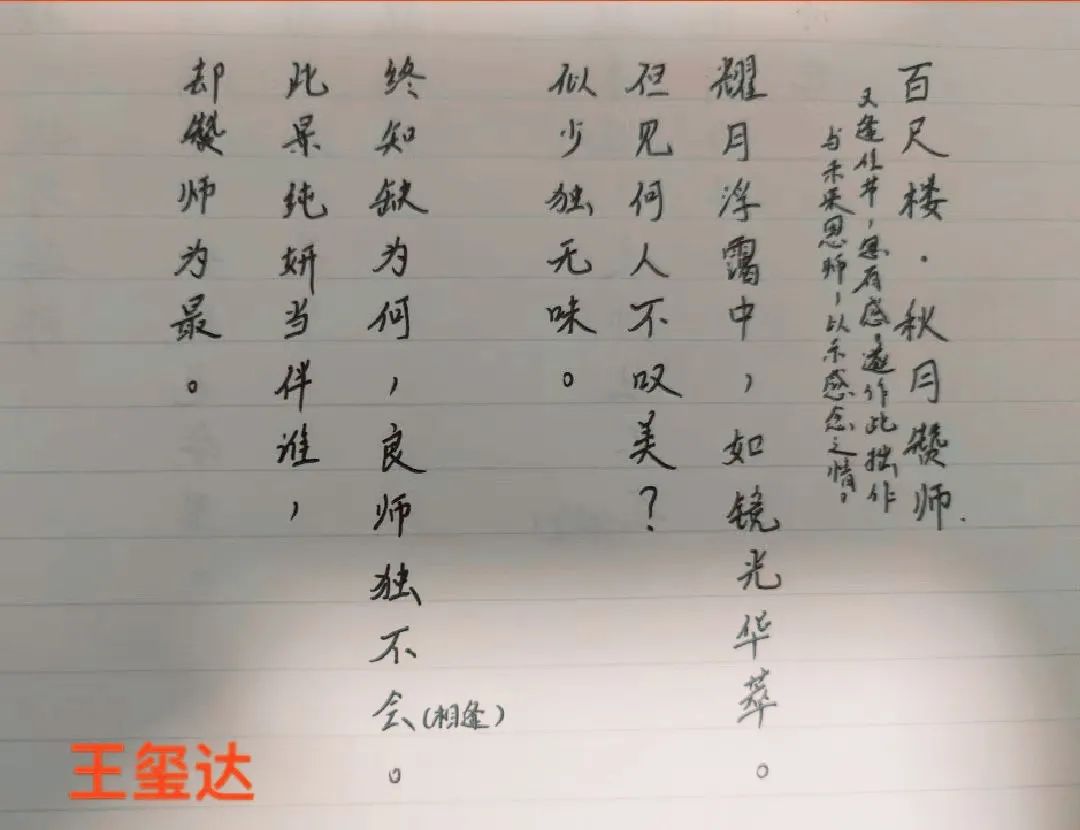 百尺楼·秋月赞师.
又逢佳节，思有感，遂作此拙作
与未来恩师，以示感念之情。
耀月浮霭中，如镜光华萃。
但见何人不叹美？
似少独无味。
终知缺为何，良师独不会(相逢)。
此景纯妍当伴谁，
却赞师为最。
王玺达